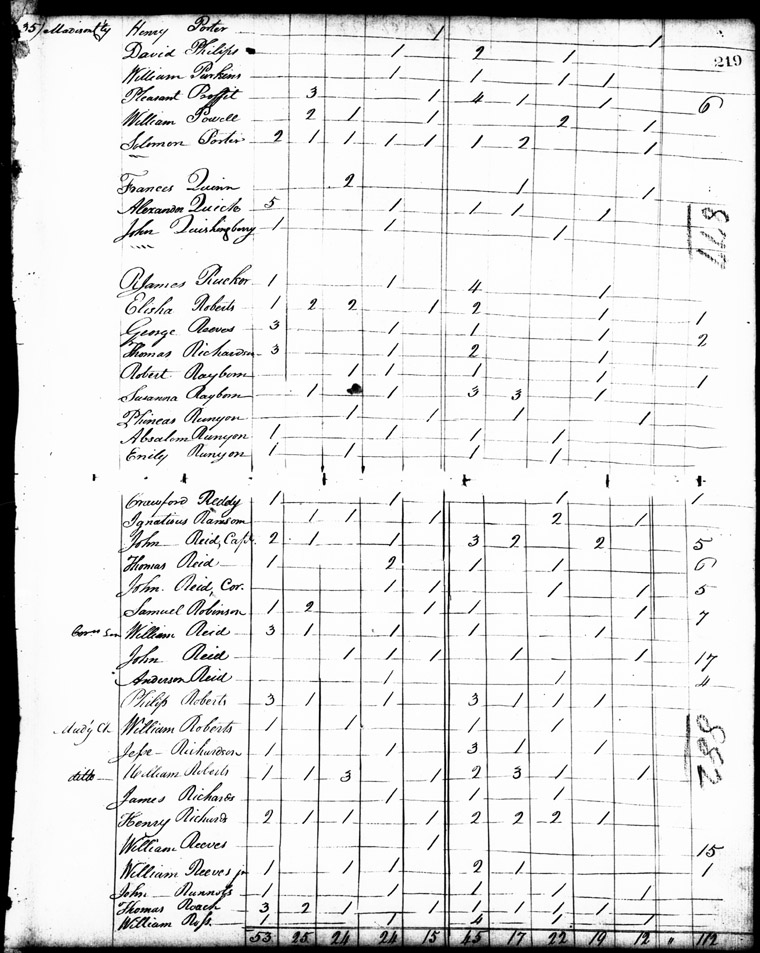 Henry Porter 1 1
David Philips 1 2 1
219
William Purkins 1 1 1 1
Pleasant Proffit 3 1 4 1 1 6
William Powell 2 1 1 2 1
Solomon Porter 2 1 1 1 1 1 2 1
Frances Quinn 2 1 1
Alexander Quick 5 1 1 1 1
John 1 1 1
James Rucker 1 1 4 1
Elisha Roberts 1 2 2 1 2 1 1
George Reeves 3 1 1 1 2
Thomas Richardson 3 1 2 1
Robert Rayborn 1 1 1 1 1
Susanna Rayborn 1 1 3 3 1
Phineas Runyon 1 1 1 1
Absalom Runyon 1 1 1 1
Enily Runyon 1 1 1 1
Crawford Reddy 1 1 1 1
Ignatious Ransom 1 1 1 2 1
John Reid, Capt. 2 1 1 3 2 2 5
Thomas Reid 1 2 1 1 6
John Reid, Cor. 1 1 1 1 5
Samuel Robinson 1 2 1 1 1 7
William Reid 3 1 1 1 1
John Reid 1 1 1 1 1 17
Anderson Reid 1 1 4
Philip Roberts 3 1 1 3 1 1 1
William Roberts 1 1 1 1
Jesse Richardson 1 1 3 1 1
ditto William Roberts 1 1 3 1 2 3 1 1
James Richards 1 1 1
Henry Richards 2 1 1 1 2 2 2 1
William Reeves 1 15
William Reeves jr 1 1 1 2 1 1
John Runnolds 1 1 1 1 1
Thomas Roach 3 2 1 1 1 1 1 1
William Ross. 1 1 4 1 1
53 25 24 24 15 45 17 22 19 12 " 112